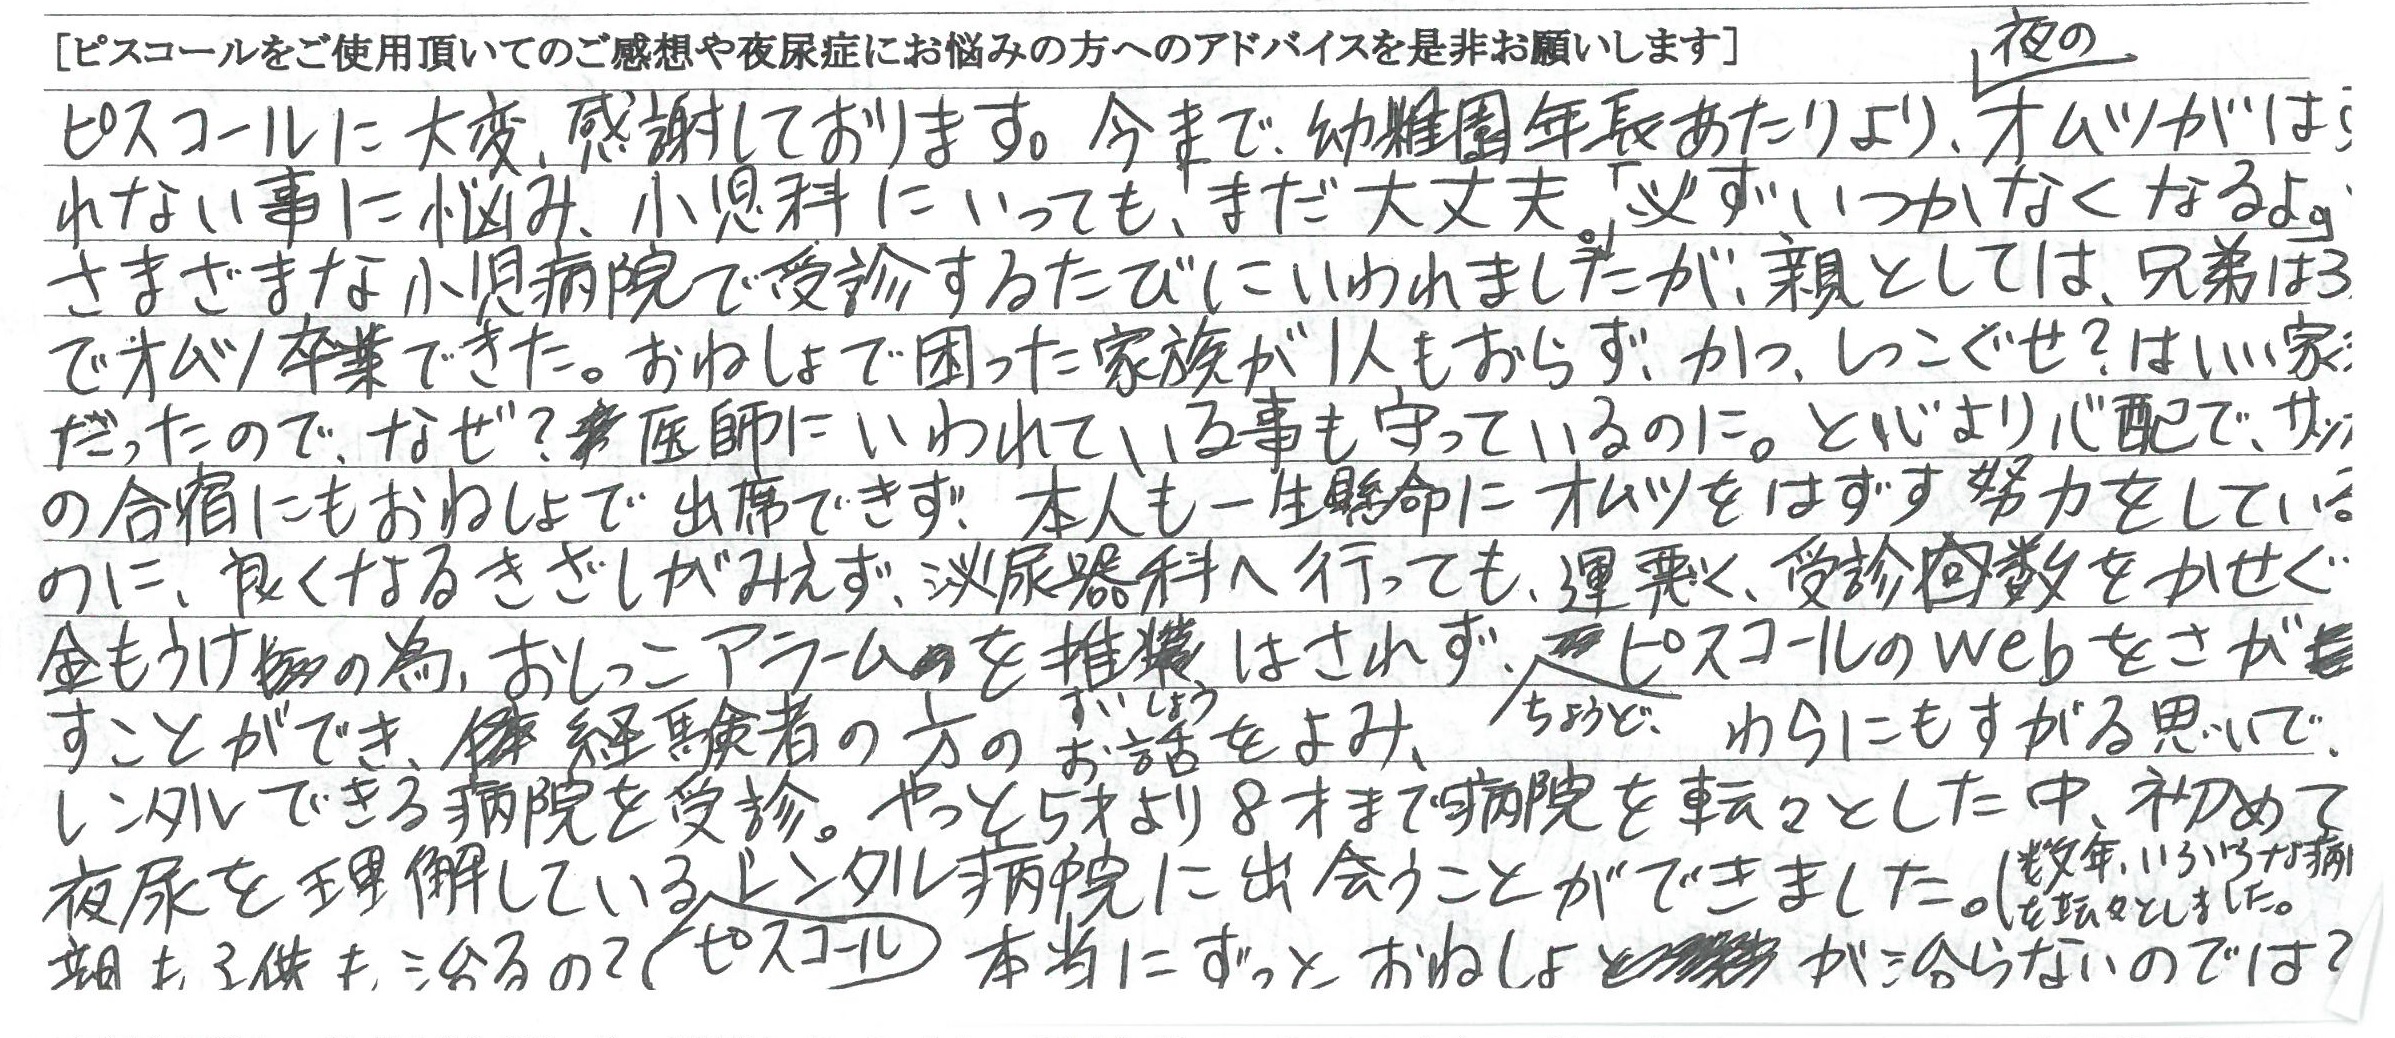 [ピスコールをご使用頂いてのご感想や夜尿症にお悩みの方へのアドバイスを是非お願いします]
夜の
ピスコールに大変、感謝しております。今まで、幼稚園年長あたりより、オムツがはら
れない事に悩み、小児科にいっても、「まだ大丈夫。」「必ずいつかなくなるよ。」
さまざまな小児病院で受診するたびにいわれましたが、親としては、兄弟は3
でオムツ卒業できた。おねしょで困った家族が1人もおらず、かつ、しっこぐせ?はいい家
だったので、なぜ?医師にいわれている事も守っているのに。と心より心配で、サッ
の合宿にもおねしょで出席できず、本人も一生懸命にオムツをはずす努力をしている
のに、良くなるきざしがみえず、泌尿器科へ行っても、運悪く、受診回数をかせぐ
金もうけの為、おしっこアラームを推奨はされず、ピスコールのwebをさが
すいしょう
ちょうど、
すことができ、経験者の方のお話をよみ、わらにもすがる思いで、
レンタルできる病院を受診。やっと5才より8才まで病院を転々とした中、初めて
夜尿を理解しているレンタル病院に出会うことができました。(数年、いろいろな病
を転々としました。
ピスコール
親も子供も治るの?(本当にずっとおねしょが治らないのでは?